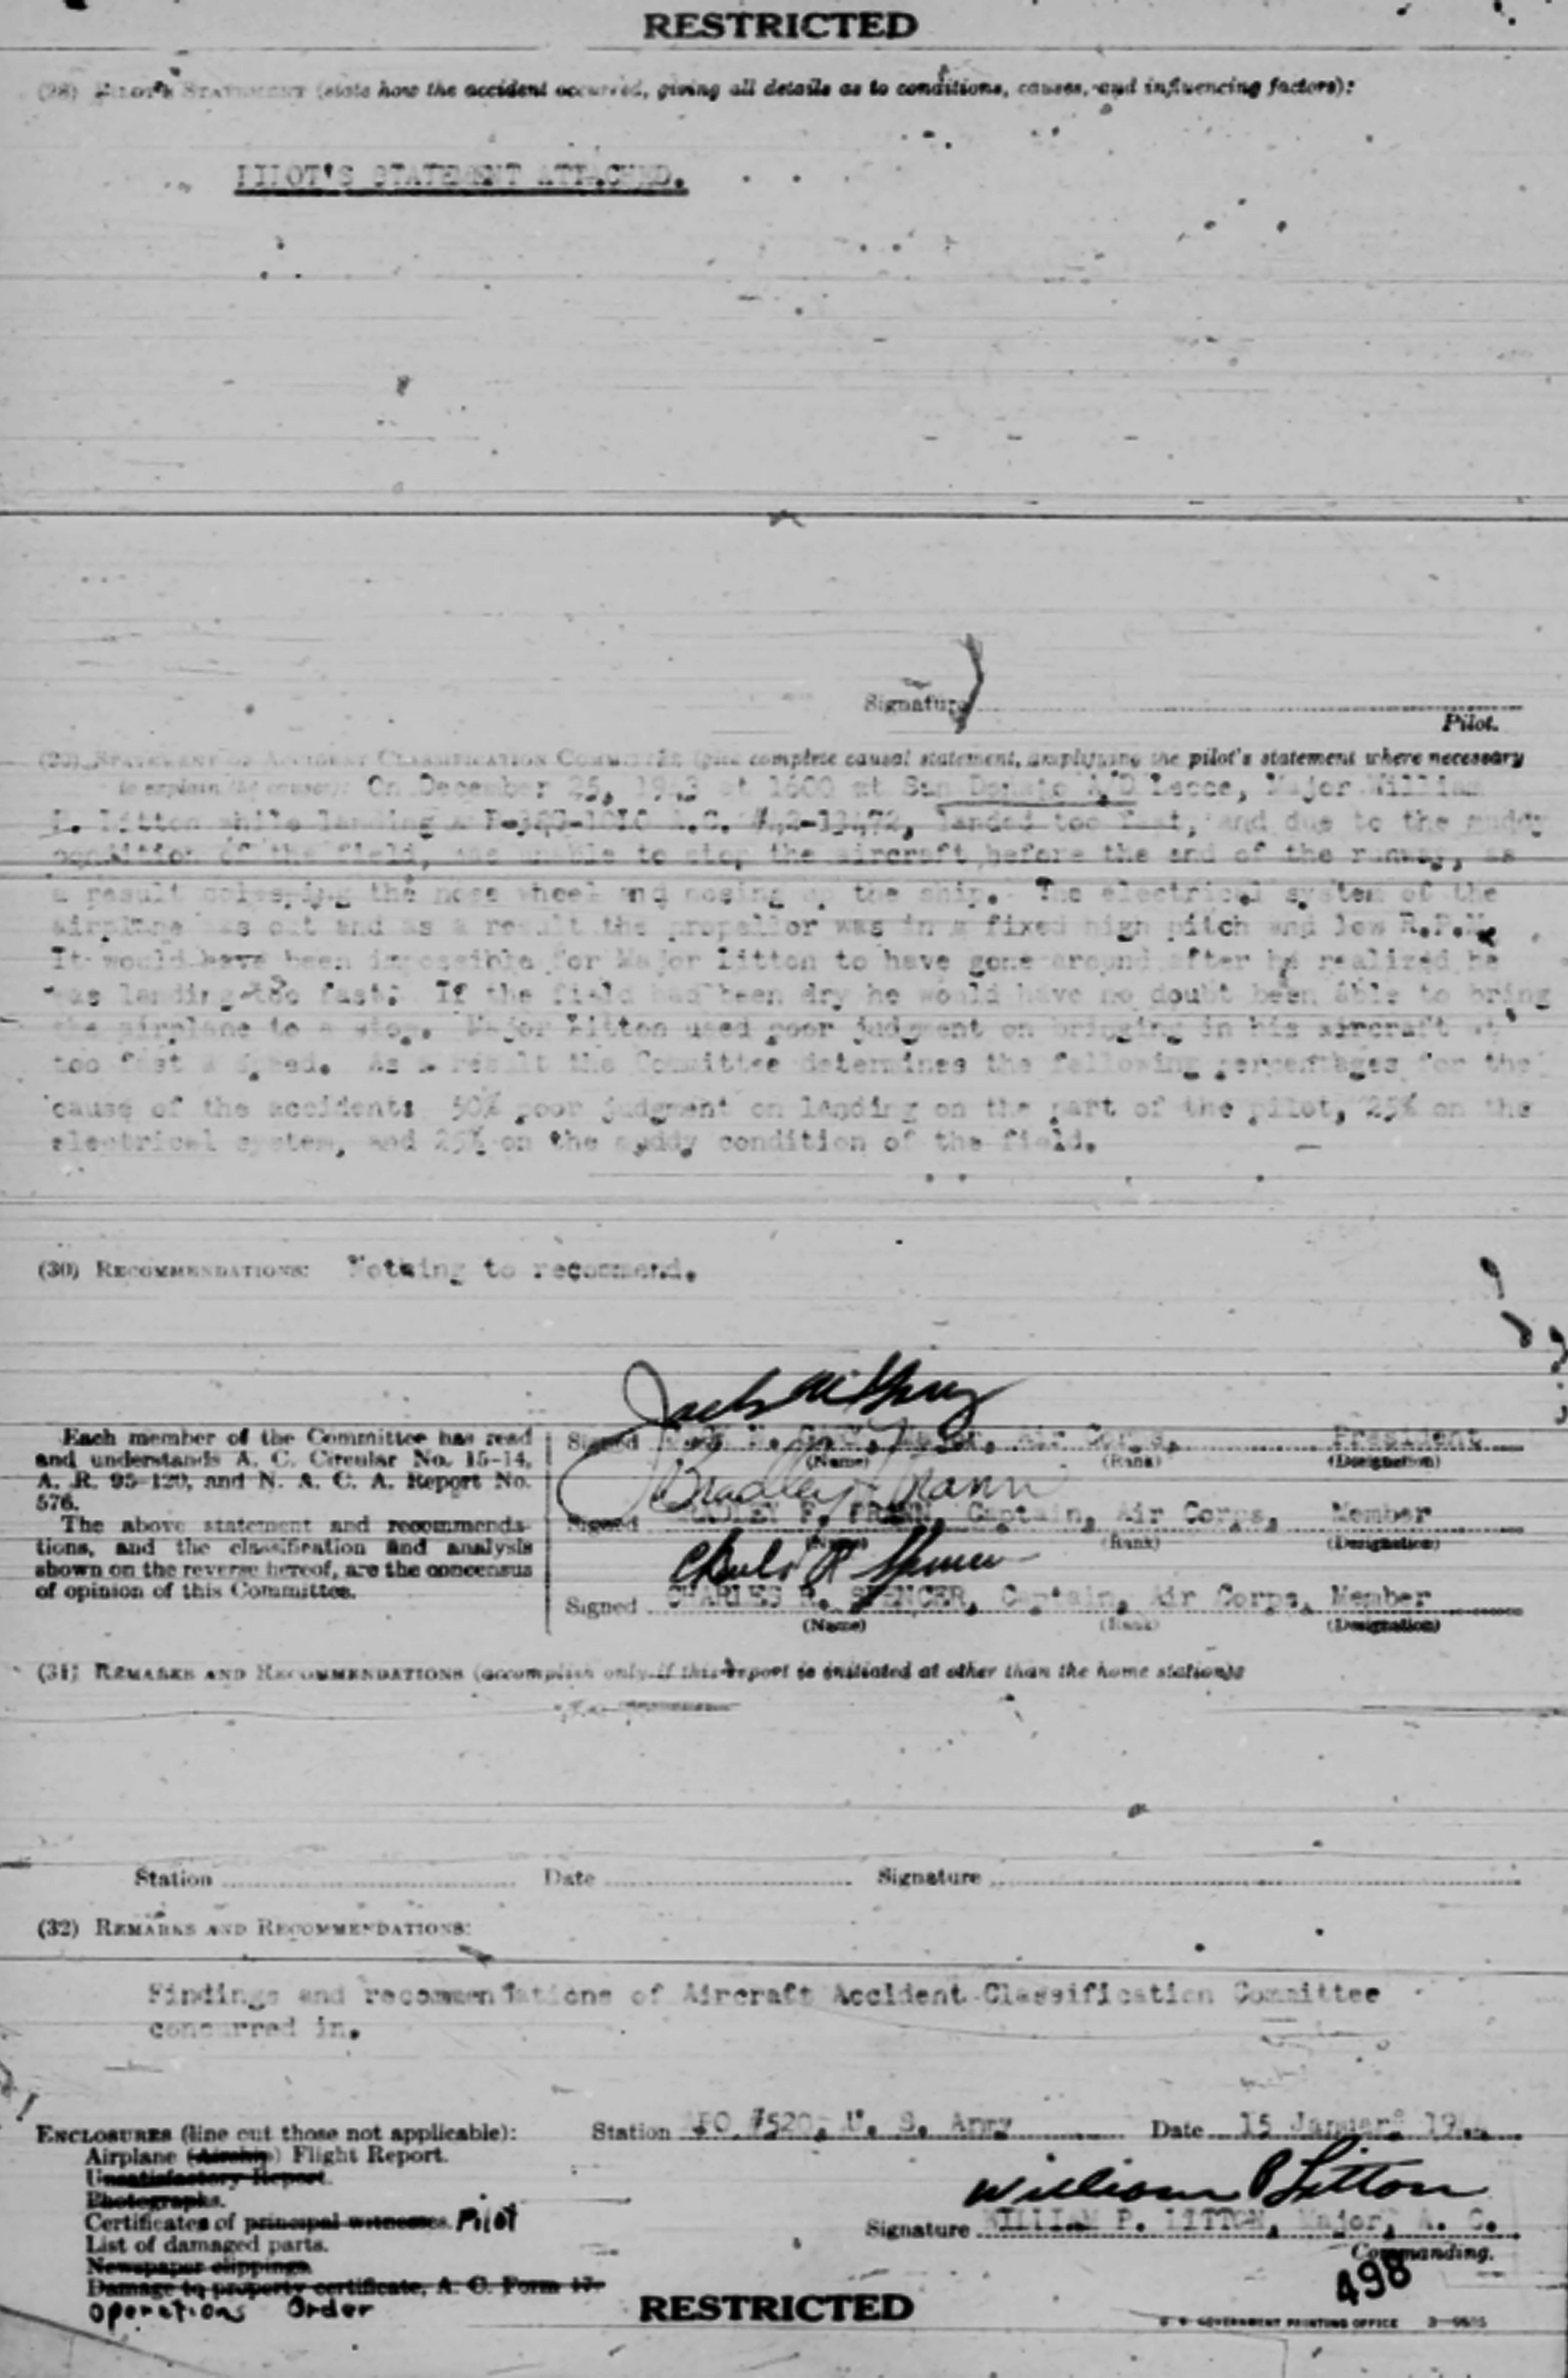 RESTRICTED
(28) PILOT'S STATEMENT (state how the accident occurred, giving all details as to conditions, causes, and influencing factors):
PILOT'S STATEMENT ATTACHED.
Signature
Pilot.
(29) STATEMENT OF ACCIDENT CLASSIFICATION COMMITTEE (give complete causal statement, amplifying the pilot's statement where necessary
to explain the cause): On December 25, 1943 at 1600 at San Donato A/D Lecce, Major William
P. Litton while landing a P-38G-10LO A.C. #42-13472, landed too fast, and due to the muddy
condition of the field, was unable to stop the aircraft before the end of the runway, as
a result collapsing the nose wheel and nosing up the ship. The electrical system of the
airplane was out and as a result the propellor was in a fixed high pitch and low R.P.M.
It would have been impossible for Major Litton to have gone around after he realized he
was landing too fast. If the field had been dry he would have no doubt been able to bring
the airplane to a stop. Major Litton used poor judgment on bringing in his aircraft at
too fast a speed. As a result the Committee determines the following percentages for the
cause of the accident: 50% poor judgment on landing on the part of the pilot, 25% on the
electrical system, and 25% on the muddy condition of the field.
(30) RECOMMENDATIONS: Nothing to recommend.
Each member of the Committee has read
and understands A. C. Circular No. 15-14,
A. R. 95-120, and N. A. C. A. Report No.
576.
The above statement and recommenda-
tions, and the classification and analysis
shown on the reverse hereof, are the concensus
of opinion of this Committee.
Signed Major, Air Corps, President
(Name) (Rank) (Designation)
Bradley
Signed BRADLEY F. PRANN, Captain, Air Corps, Member
(Name) (Rank) (Designation)
Charles R Spencer
Signed CHARLES R. SPENCER, Captain, Air Corps, Member
(Name) (Rank) (Designation)
(31) REMARKS AND RECOMMENDATIONS (accomplish only if this report is initiated at other than the home station):
Station Date Signature
(32) REMARKS AND RECOMMENDATIONS:
Findings and recommendations of Aircraft Accident Classification Committee
concurred in.
ENCLOSURES (line out those not applicable):
Airplane (Airship) Flight Report.
Unsatisfactory Report.
Photographs.
Certificates of principal witnesses. Pilot
List of damaged parts.
Newspaper clippings.
Damage to property certificate, A. C. Form 17.
Operations Order
Station APO #520, U. S. Army Date 15 January
William P Litton
Signature WILLIAM P. LITTON, Major, A. C.
Commanding.
498
RESTRICTED
U. S. GOVERNMENT PRINTING OFFICE